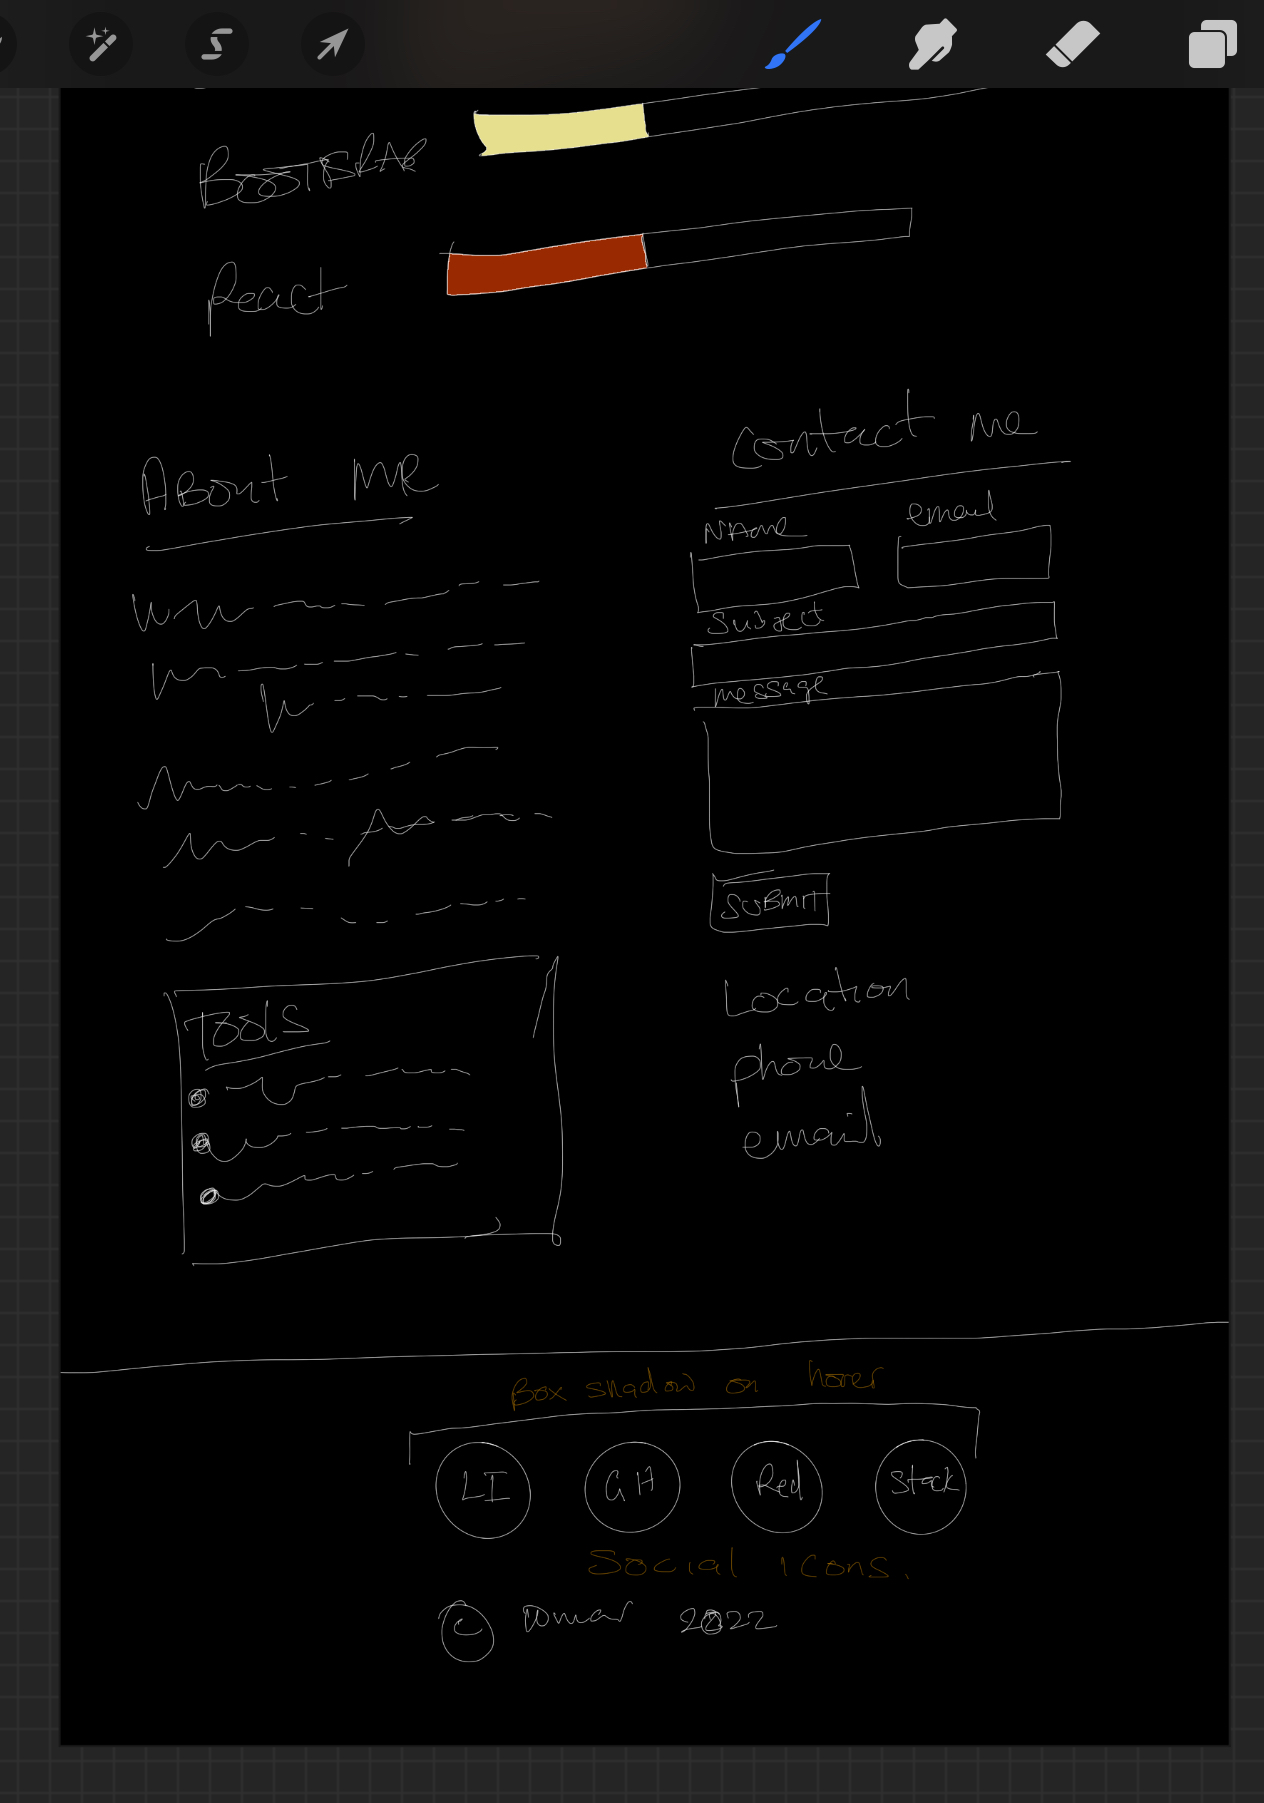 BOOTSRAP
React
About Me
Contact me
Name
email
Subject
message
SUBMIT
Location
phone
email
TOOLS
Box shadow on hover
LI
GH
Red
Stack
Social icons.
© Omar 2022